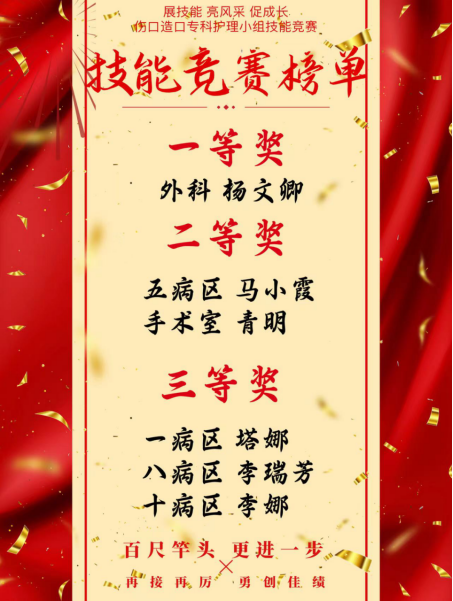 展技能 亮风采 促成长
伤口造口专科护理小组技能竞赛
技能竞赛榜单
一等奖
外科 杨文卿
二等奖
五病区 马小霞
手术室 青明
三等奖
一病区 塔娜
八病区 李瑞芳
十病区 李娜
百尺竿头 更进一步
再接再厉 勇创佳绩